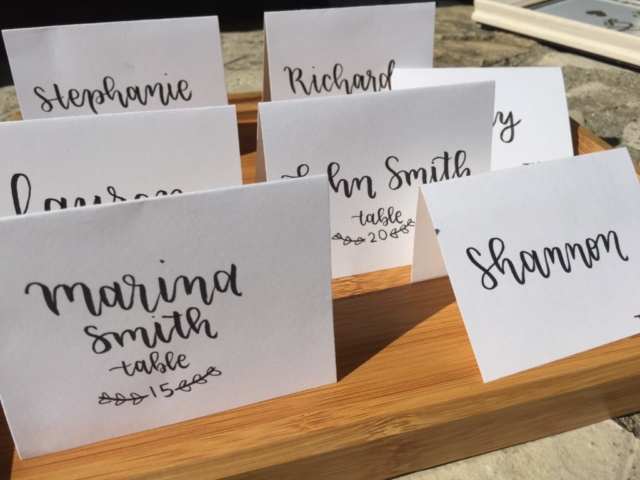 stephanie
Richard
lauren
John Smith
table
20
Shannon
marina
smith
table
15